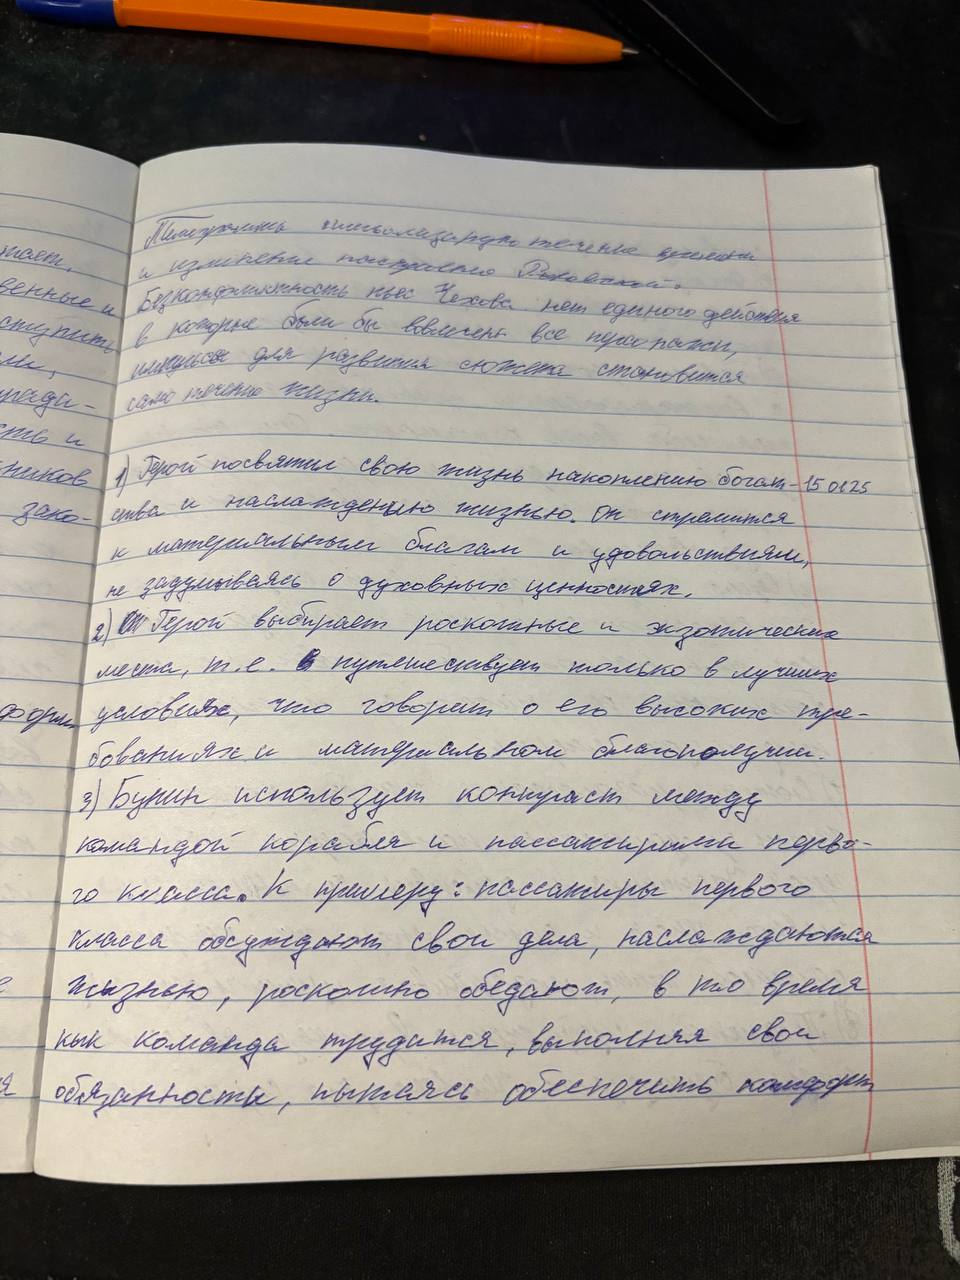 тает,
венные и
ступить
ми,
режди-
сть и
ников
зако-
форм
я
Телеграммы символизируют течение времени
и изменение настроения Раневской.
Безконфликтность пьес Чехова, нет единого действия
в которые были бы вовлечены все персонажи,
импульсом для развития сюжета становится
само течение жизни.
1) Герой посвятил свою жизнь накоплению богат- 15 01 25
ства и наслаждению жизнью. Он стремится
к материальным благам и удовольствиям,
не задумываясь о духовных ценностях.
2) Герой выбирает роскошные и экзотические
места, т.е. путешествует только в лучших
условиях, что говорит о его высоких тре-
бованиях и материальном благополучии.
3) Бунин использует контраст между
командой корабля и пассажирами перво-
го класса. К примеру: пассажиры первого
класса обсуждают свои дела, наслаждаются
жизнью, роскошно обедают, в то время
как команда трудится, выполняя свои
обязанности, пытаясь обеспечить комфорт